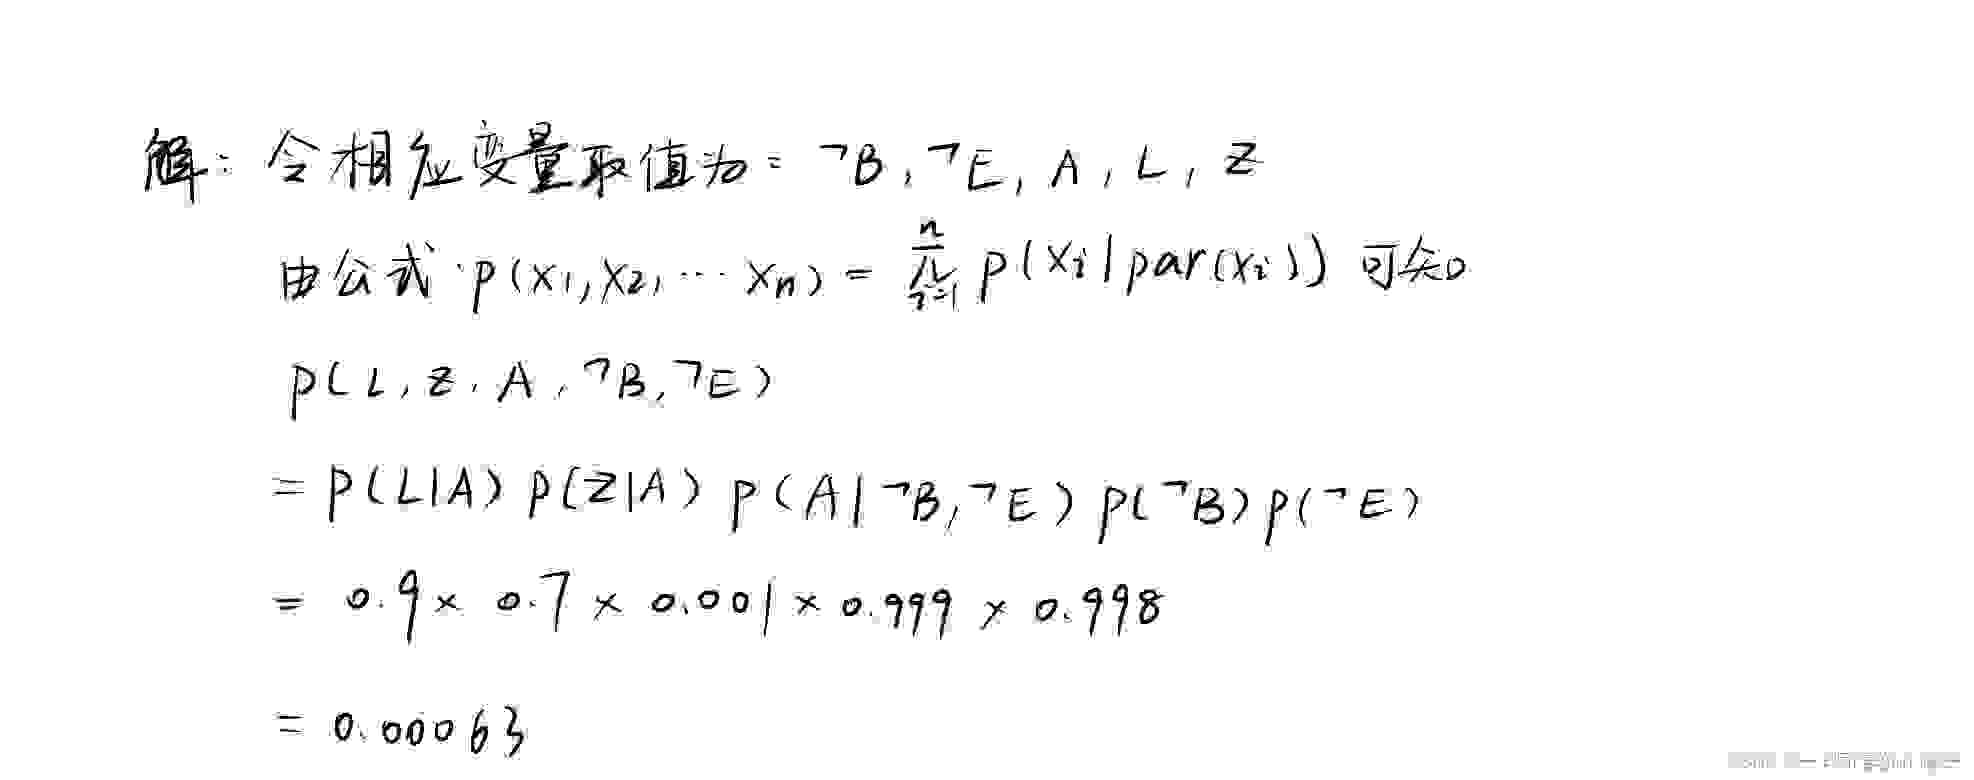 解：令相应变量取值为：¬B, ¬E, A, L, Z
由公式 P(X1, X2, … Xn) = ∏ⁿᵢ₌₁ P(Xi | par(Xi)) 可知
P(L, Z, A, ¬B, ¬E)
= P(L|A) P(Z|A) P(A|¬B, ¬E) P(¬B) P(¬E)
= 0.9 × 0.7 × 0.001 × 0.999 × 0.998
= 0.00063